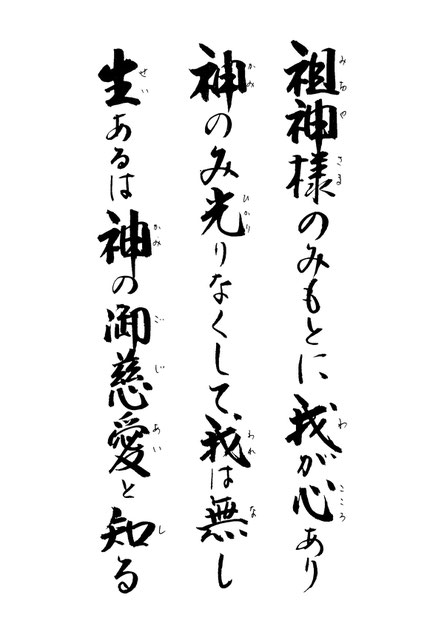 祖神様のみもとに我が心あり
神のみ光りなくして我は無し
生あるは神の御慈愛と知る